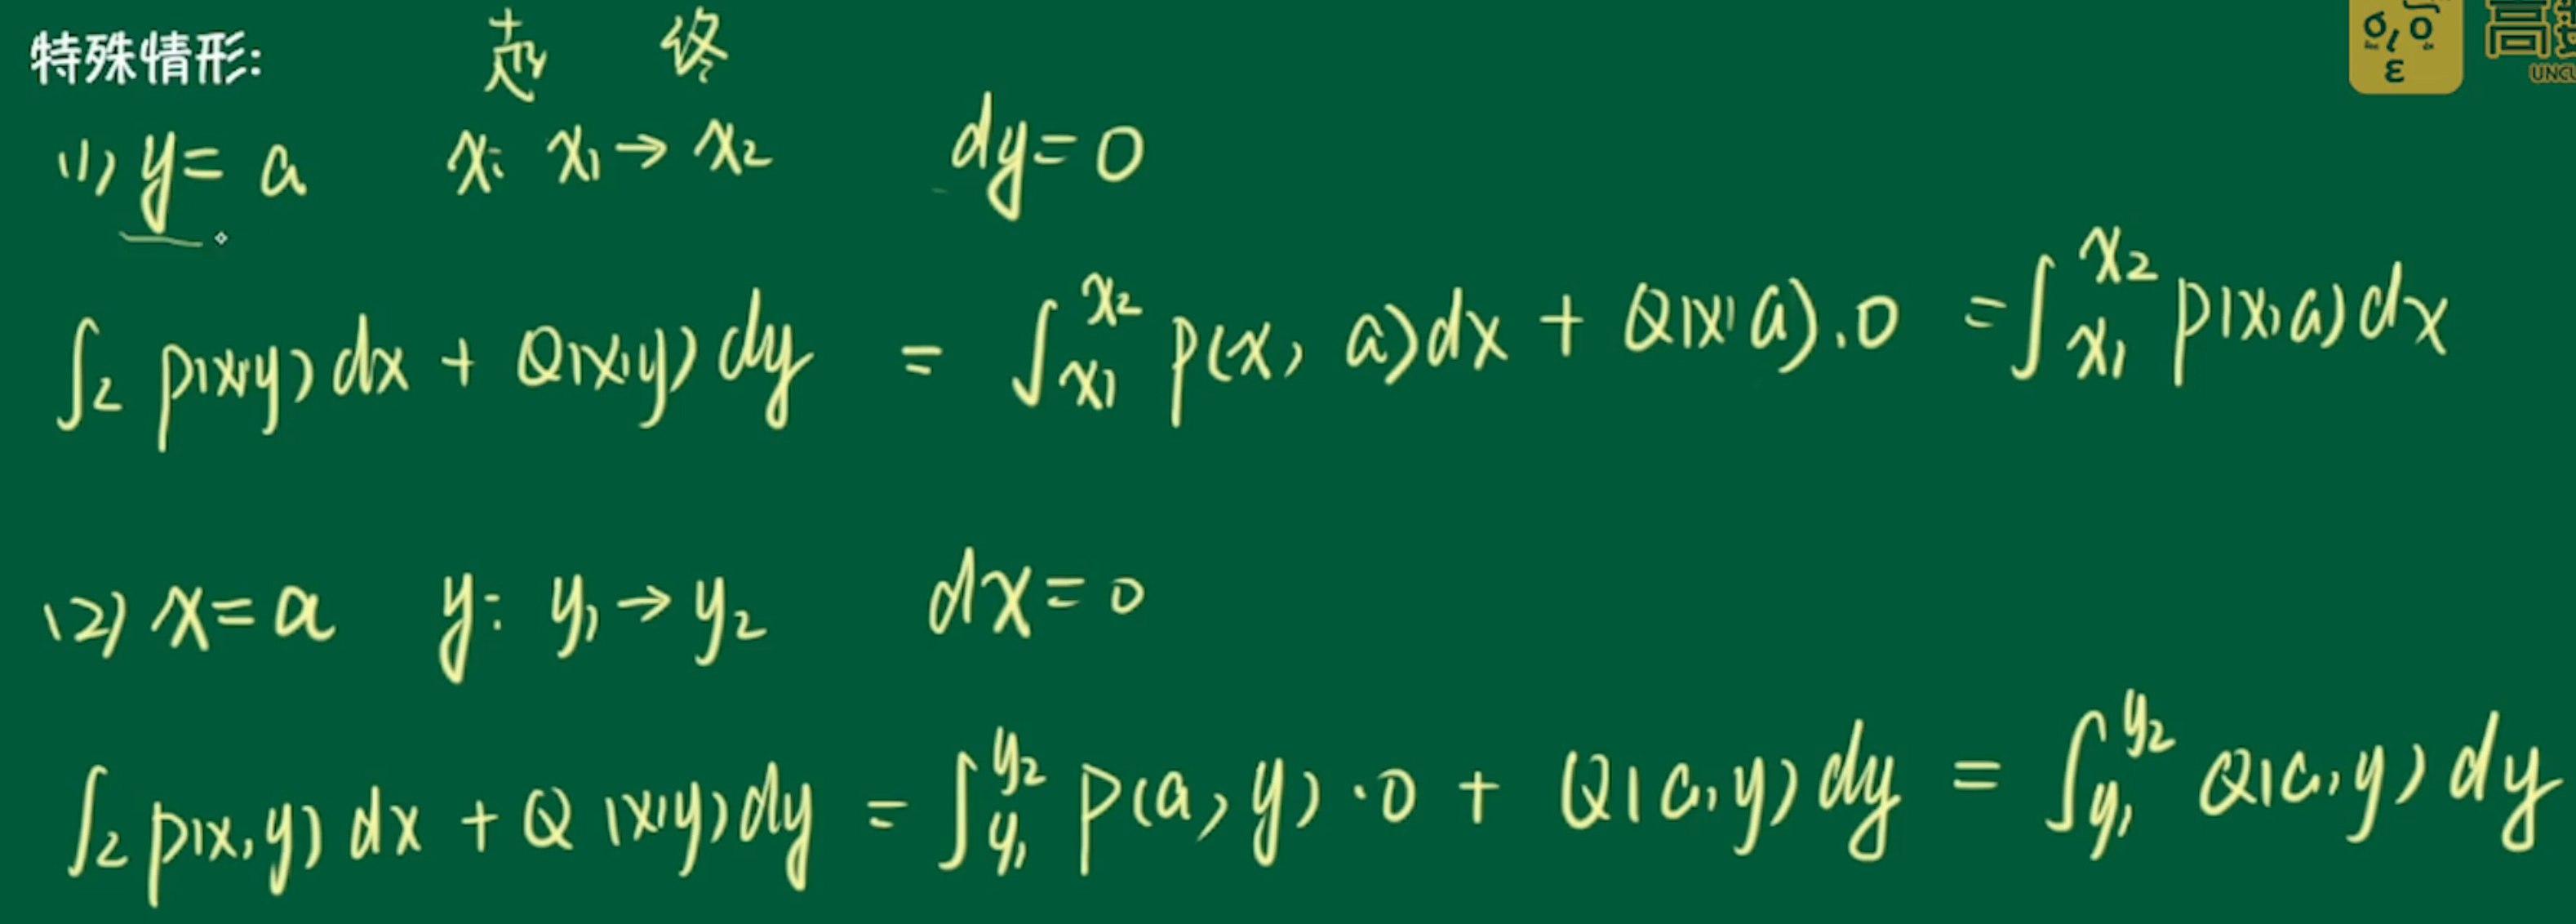 特殊情形:
起 终
(1) y = a x: x₁ → x₂ dy = 0
∫_L P(x,y) dx + Q(x,y) dy = ∫_{x₁}^{x₂} P(x, a) dx + Q(x,a).0 = ∫_{x₁}^{x₂} P(x,a) dx
(2) x = a y: y₁ → y₂ dx = 0
∫_L P(x,y) dx + Q(x,y) dy = ∫_{y₁}^{y₂} P(a,y)·0 + Q(a,y) dy = ∫_{y₁}^{y₂} Q(a,y) dy